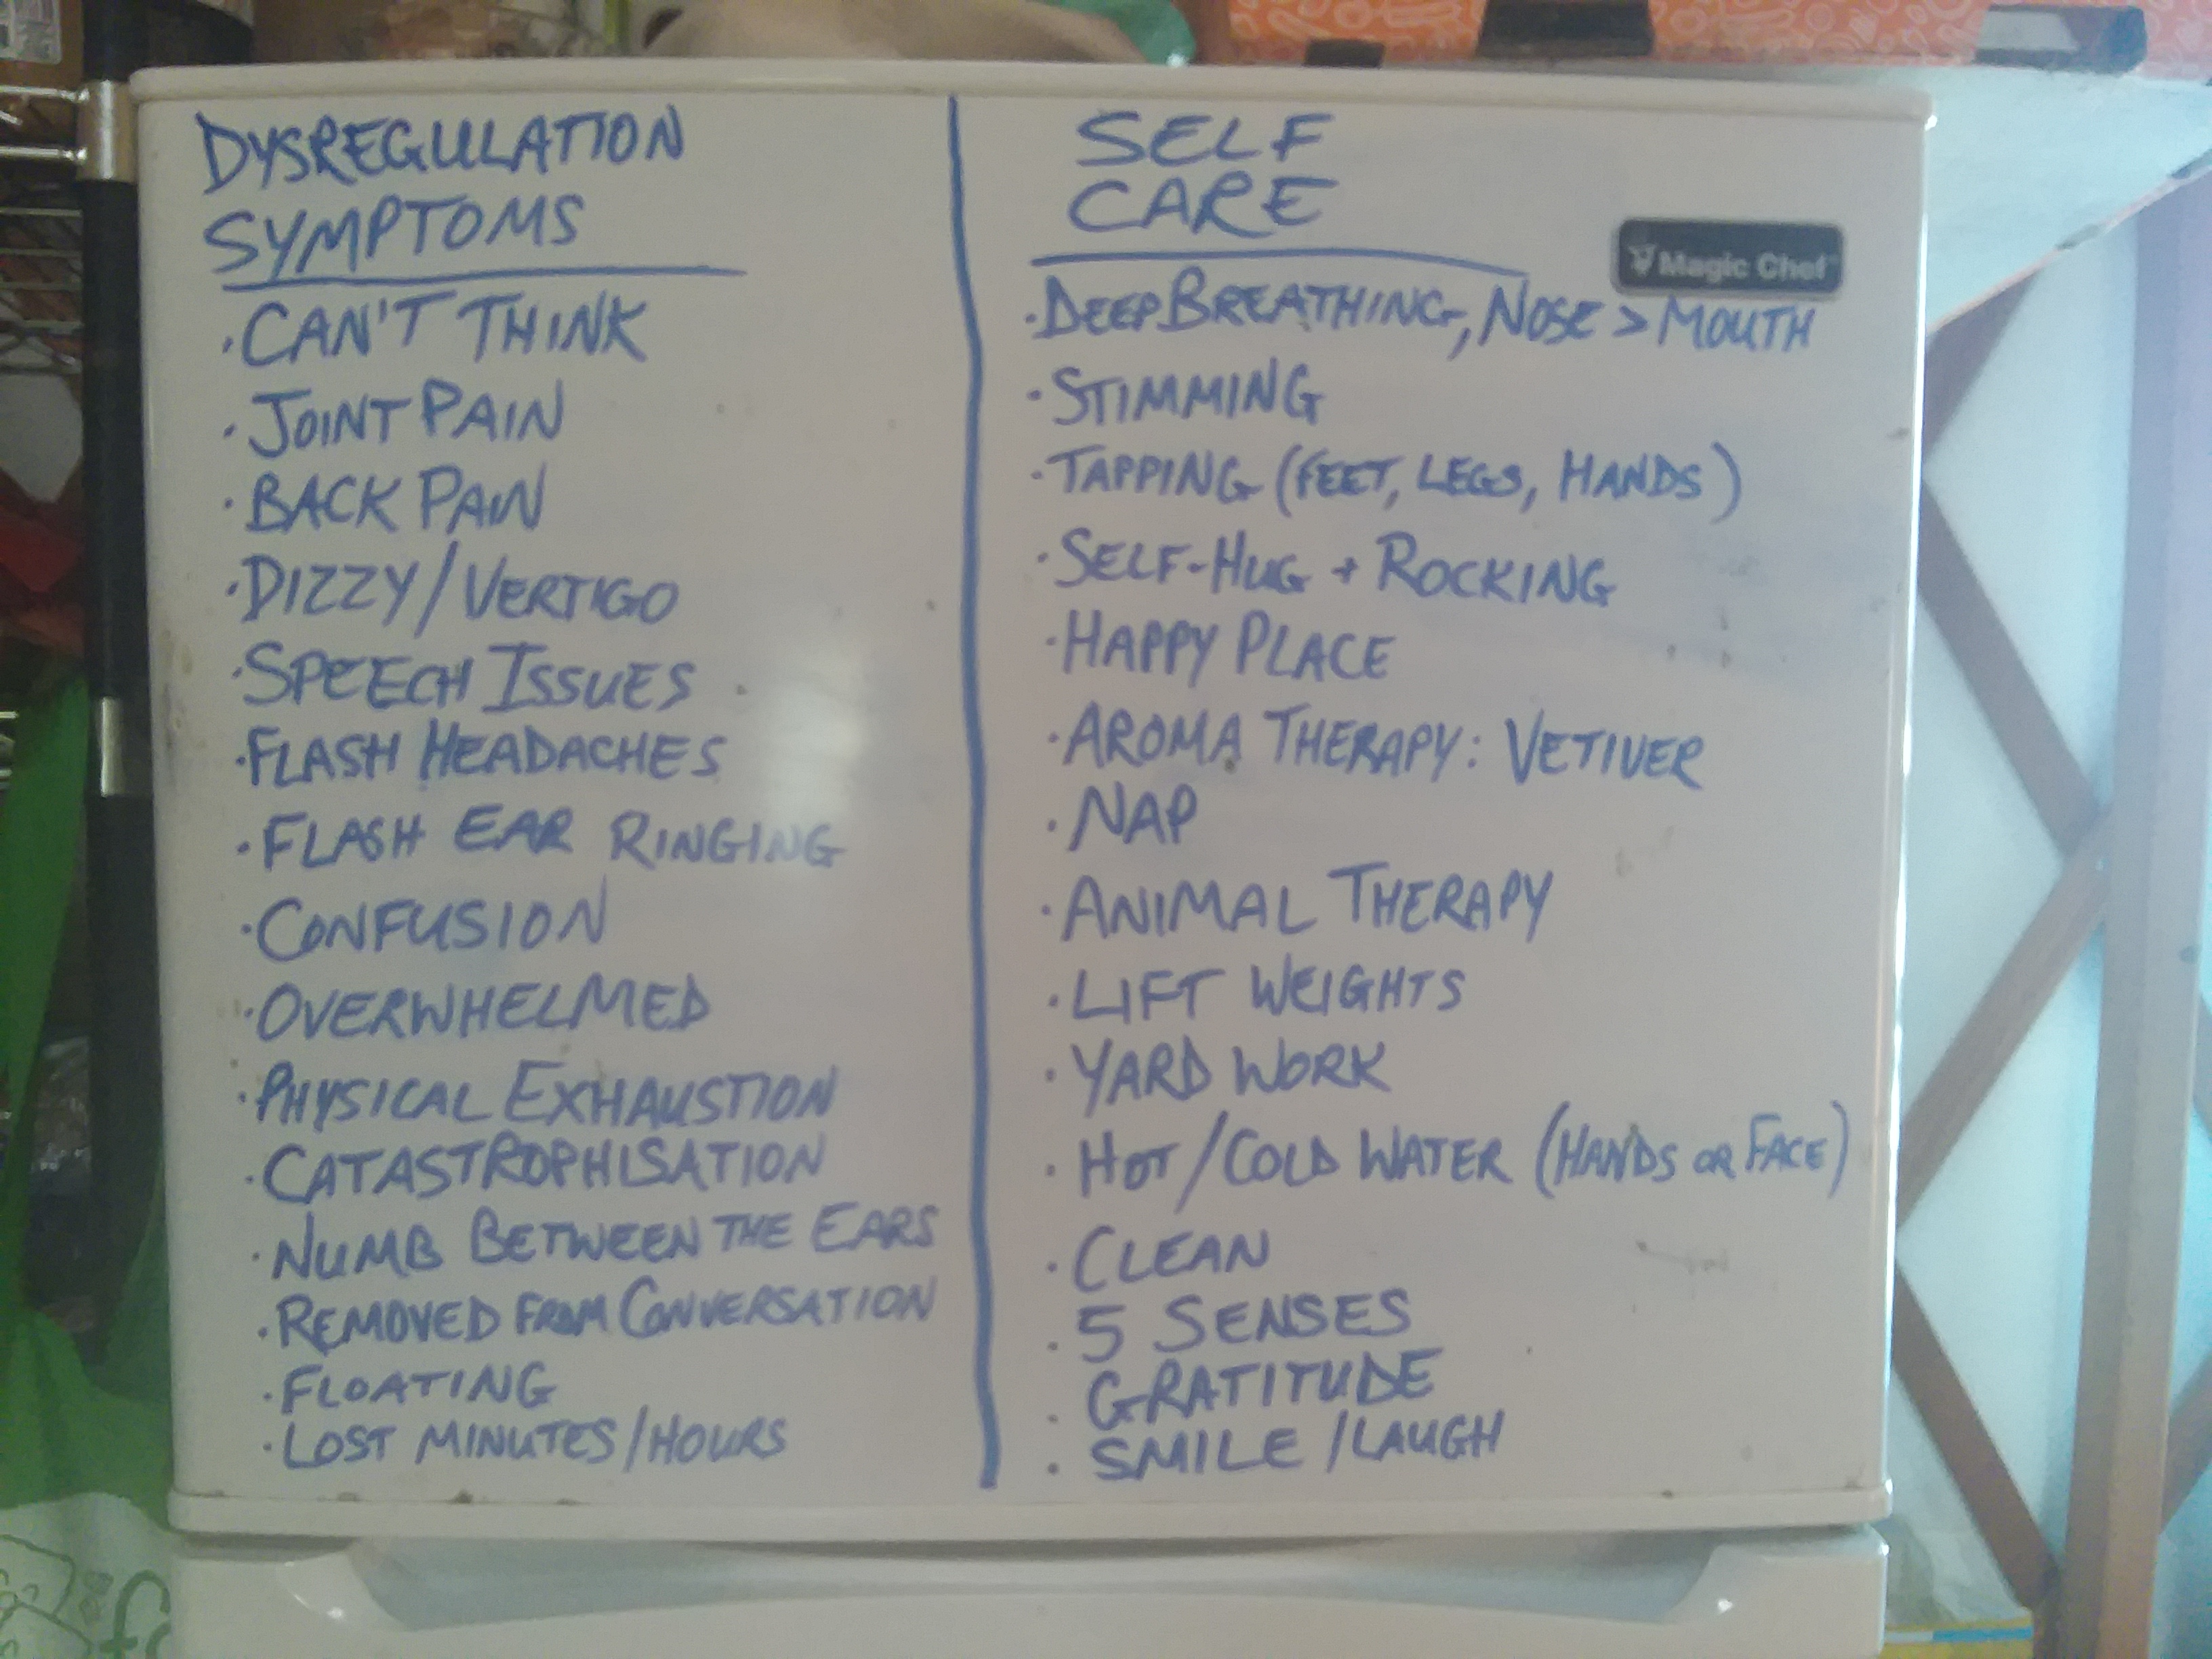 DYSREGULATION
SYMPTOMS
· CAN'T THINK
· JOINT PAIN
· BACK PAIN
· DIZZY/VERTIGO
· SPEECH ISSUES
· FLASH HEADACHES
· FLASH EAR RINGING
· CONFUSION
· OVERWHELMED
· PHYSICAL EXHAUSTION
· CATASTROPHISATION
· NUMB BETWEEN THE EARS
· REMOVED FROM CONVERSATION
· FLOATING
· LOST MINUTES/HOURS
SELF
CARE
Magic Chef
· DEEP BREATHING, NOSE > MOUTH
· STIMMING
· TAPPING (FEET, LEGS, HANDS)
· SELF-HUG + ROCKING
· HAPPY PLACE
· AROMA THERAPY: VETIVER
· NAP
· ANIMAL THERAPY
· LIFT WEIGHTS
· YARD WORK
· HOT/COLD WATER (HANDS OR FACE)
· CLEAN
· 5 SENSES
· GRATITUDE
· SMILE/LAUGH